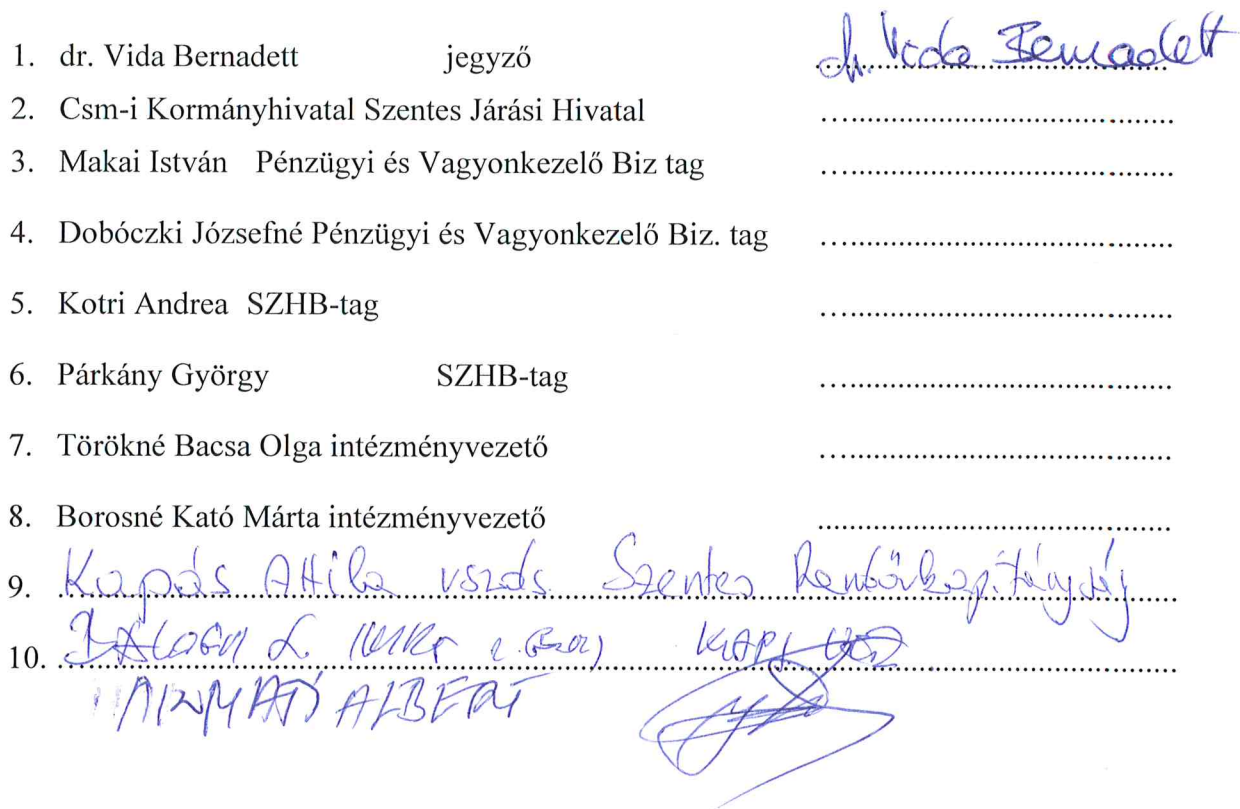 1. dr. Vida Bernadett jegyző dr. Vida Bernadett
2. Csm-i Kormányhivatal Szentes Járási Hivatal ........................................
3. Makai István Pénzügyi és Vagyonkezelő Biz tag ........................................
4. Dobóczki Józsefné Pénzügyi és Vagyonkezelő Biz. tag ........................................
5. Kotri Andrea SZHB-tag ........................................
6. Párkány György SZHB-tag ........................................
7. Törökné Bacsa Olga intézményvezető ........................................
8. Borosné Kató Márta intézményvezető ........................................
9. Kopás Attila vszds. Szentes Rendőrkapitányság
10. BALOGH L. IMRE
ALBERT